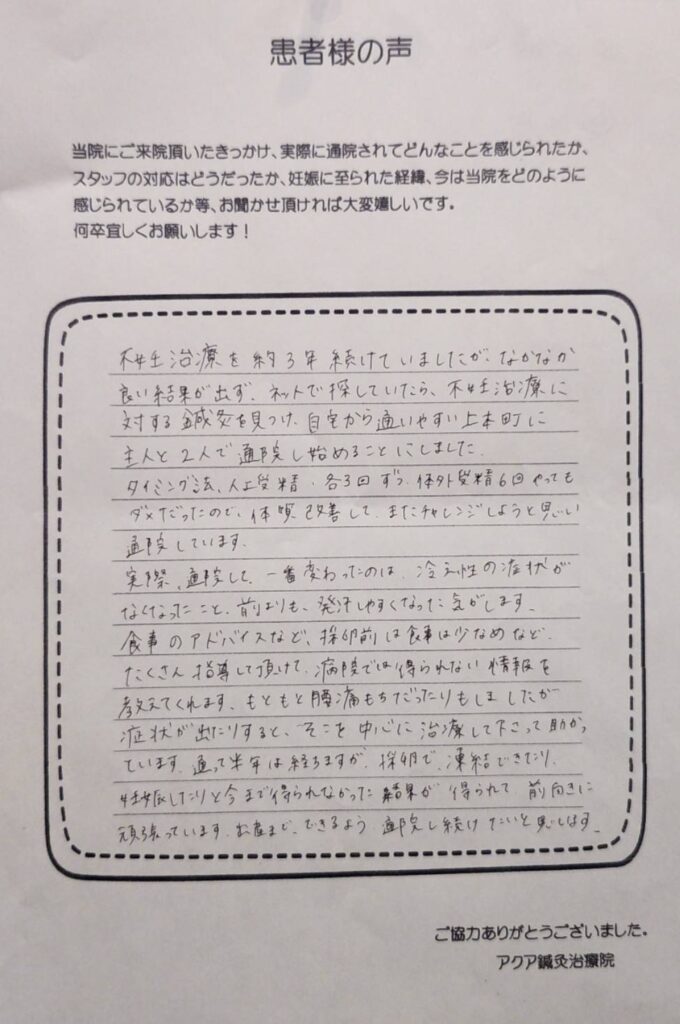 患者様の声
当院にご来院頂いたきっかけ、実際に通院されてどんなことを感じられたか、
スタッフの対応はどうだったか、妊娠に至られた経緯、今は当院をどのように
感じられているか等、お聞かせ頂ければ大変嬉しいです。
何卒宜しくお願いします!
不妊治療を約3年続けていましたが、なかなか
良い結果が出ず、ネットで探していたら、不妊治療に
対する鍼灸を見つけ、自宅から通いやすい上本町に
主人と2人で通院し始めることにしました。
タイミング法、人工受精、各3回ずつ、体外受精6回やっても
ダメだったので、体質改善して、またチャレンジしようと思い
通院しています。
実際、通院して、一番変わったのは、冷え性の症状が
なくなったこと、前よりも、発汗しやすくなった気がします。
食事のアドバイスなど、採卵前は食事は少なめなど、
たくさん指導して頂けて、病院では得られない情報を
教えてくれます。もともと腰痛もちだったりもしましたが
症状が出たりすると、そこを中心に治療して下さって助かっ
ています。通って半年は経ちますが、採卵で、凍結できたり、
妊娠したりと今まで得られなかった結果が得られて前向きに
頑張っています。お産まで、できるよう通院し続けたいと思います。
ご協力ありがとうございました。
アクア鍼灸治療院